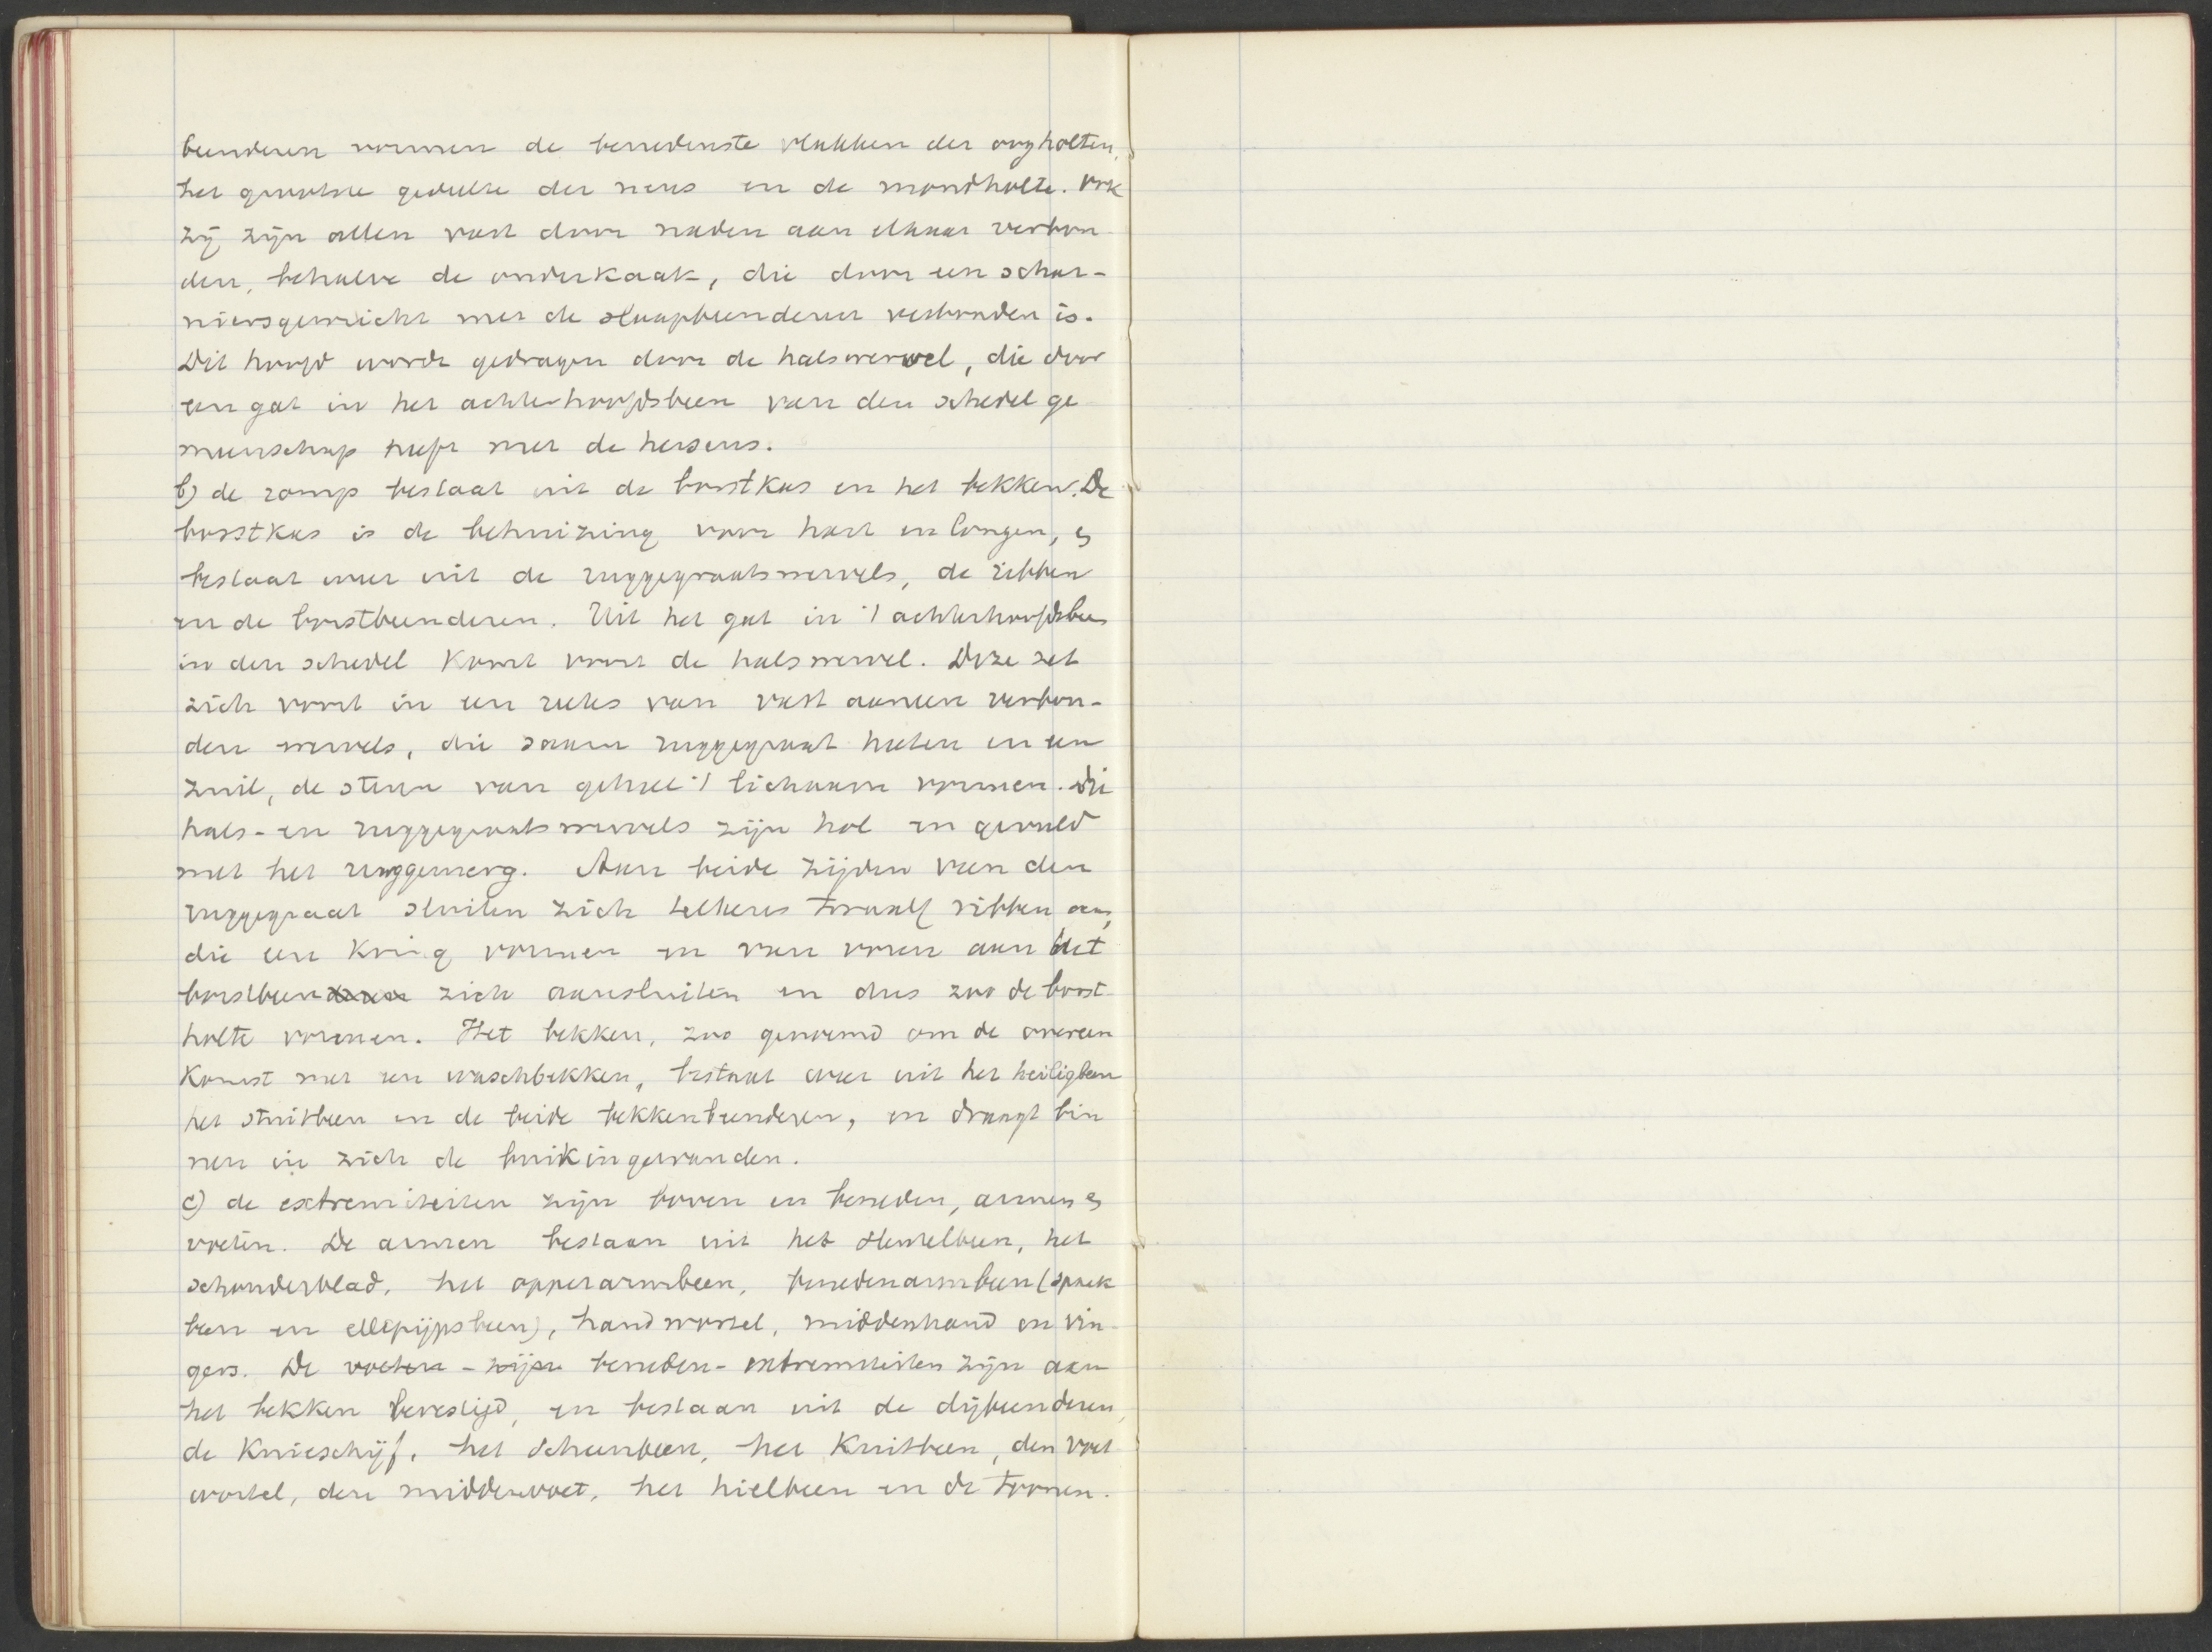 beenderen vormen de benedenste vlakken der oogholten,
het grootste gedeelte der neus en de mondholte. Ook
zij zijn allen vast door naden aan elkaar verbon
den, behalve de onderkaak, die door een schar-
niersgewricht met de slaapbeenderen verbonden is.
Dit hoofd wordt gedragen door de halswervel, die door
een gat in het achterhoofdsbeen van den schedel ge
meenschap heeft met de hersens.
b) de romp bestaat uit de borstkas en het bekken. De
borstkas is de behuizing voor hart en longen, en
bestaat weer uit de ruggegraatswervels, de ribben
en de borstbeenderen. Uit het gat in 't achterhoofdsbeen
in den schedel komt voort de halswervel. Deze zet
zich voort in een reeks van vast aaneen verbon-
den wervels, die samen ruggegraat heeten en een
zuil, de steun van geheel 't lichaam vormen. Die
hals- en ruggegraatswervels zijn hol en gevuld
met het ruggemerg. Aan beide zijden van den
ruggegraat sluiten zich telkens twaalf ribben aan,
die een kring vormen en van voren aan het
borstbeenderen zich aansluiten en dus zoo de borst
holte vormen. Het bekken, zoo genoemd om de overeen
komst met een waschbekken, bestaat weer uit het heiligbeen
het stuitbeen en de beide bekkenbeenderen, en draagt bin
nen in zich de buikingewanden.
c) de extremiteiten zijn boven en beneden, armen en
voeten. De armen bestaan uit het sleutelbeen, het
schouderblad, het opperarmbeen, benedenarmbeen (spaak
been en ellepijpsbeen), handwortel, middenhand en vin-
gers. De voeten - zijn beneden-extremiteiten zijn aan
het bekken bevestigd, en bestaan uit de dijbeenderen,
de knieschijf, het scheenbeen, het kuitbeen, den voet
wortel, den middenvoet, het hielbeen en de toonen.